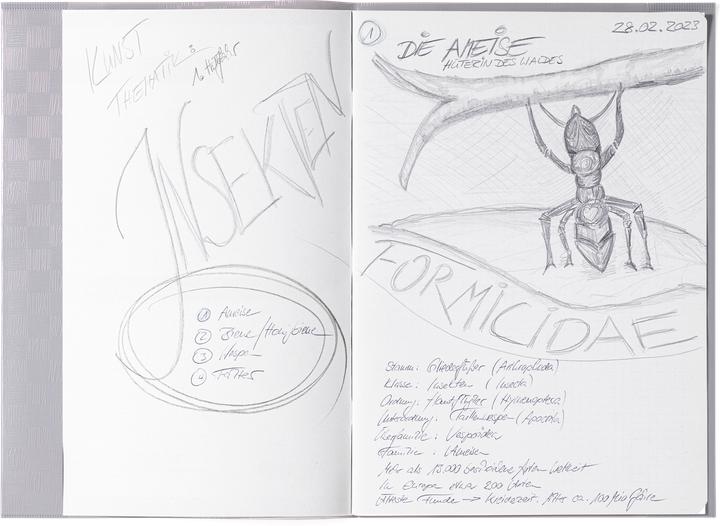 KUNST
THEMATIK:
1. Halbjahr
INSEKTEN
① Ameise
② Biene/Honigbiene
③ Wespe
④
① DIE AMEISE 28.02.2023
HÜTERIN DES WALDES
FORMICIDAE
Stamm: Gliederfüßer (Arthropoda)
Klasse: Insekten (Insecta)
Ordnung: Hautflügler (Hymenoptera)
Unterordnung: Taillenwespen (Apocrita)
Überfamilie: Vespoidea
Familie: Ameisen
Mehr als 13.000 beschriebene Arten weltweit
In Europa etwa 200 Arten
Älteste Funde → Kreidezeit. Alter ca. 100 Mio Jahre